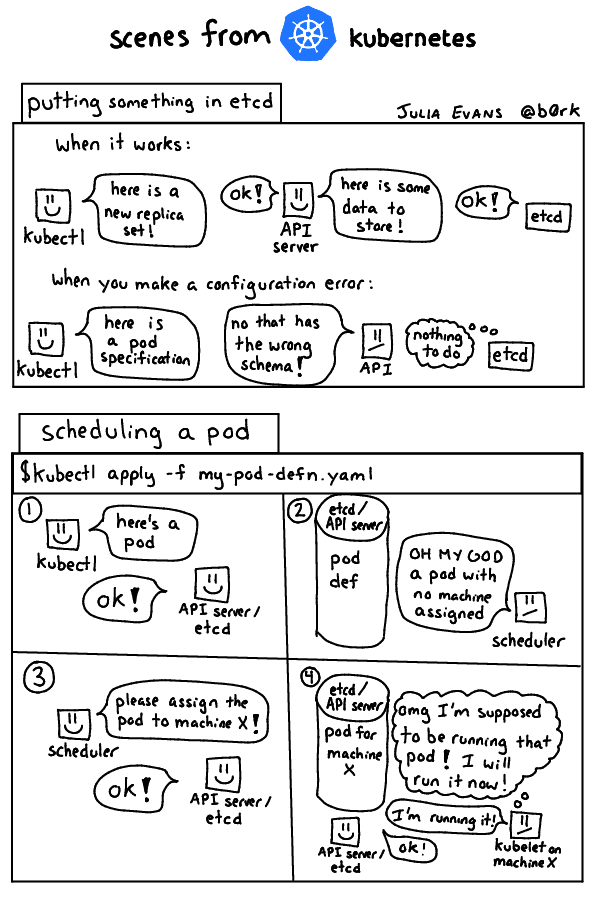 scenes from kubernetes
putting something in etcd
JULIA EVANS @b0rk
when it works:
here is a
new replica
set!
kubectl
ok!
API
server
here is some
data to
store!
ok!
etcd
when you make a configuration error:
here is
a pod
specification
kubectl
no that has
the wrong
schema!
API
nothing
to do
etcd
scheduling a pod
$kubectl apply -f my-pod-defn.yaml
1
here's a
pod
kubectl
ok!
API server/
etcd
2
etcd/
API server
pod
def
OH MY GOD
a pod with
no machine
assigned
scheduler
3
please assign the
pod to machine X!
scheduler
ok!
API server/
etcd
4
etcd/
API server
pod for
machine
X
omg I'm supposed
to be running that
pod! I will
run it now!
I'm running it!
kubelet on
machine X
ok!
API server/
etcd